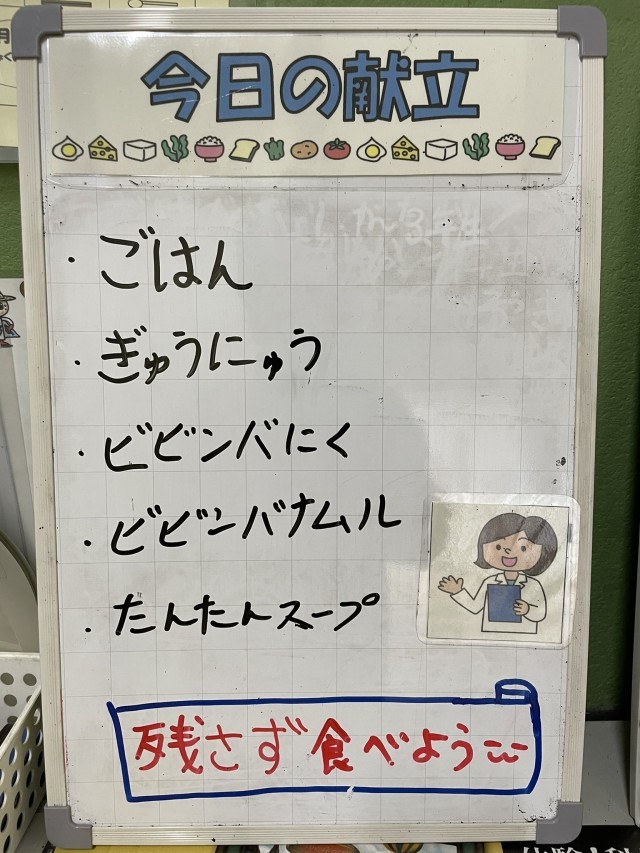 今日の献立
・ごはん
・ぎゅうにゅう
・ビビンバにく
・ビビンバナムル
・たんたんスープ
残さず食べよう